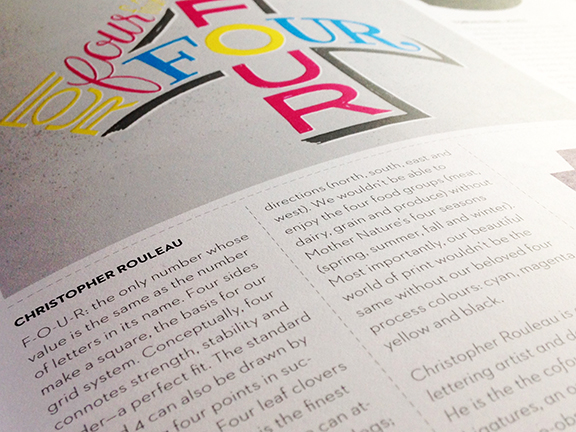 four
FOUR
FOUR
FOUR
CHRISTOPHER ROULEAU
F-O-U-R: the only number whose
value is the same as the number
of letters in its name. Four sides
make a square, the basis for our
grid system. Conceptually, four
connotes strength, stability and
der–a perfect fit. The standard
4 can also be drawn by
four points in suc-
Four leaf clovers
is the finest
can at-
directions (north, south, east and
west). We wouldn't be able to
enjoy the four food groups (meat,
dairy, grain and produce) without
Mother Nature's four seasons
(spring, summer, fall and winter).
Most importantly, our beautiful
world of print wouldn't be the
same without our beloved four
process colours: cyan, magenta
yellow and black.
Christopher Rouleau is
lettering artist and d
He is the the cofou
igatures, an o